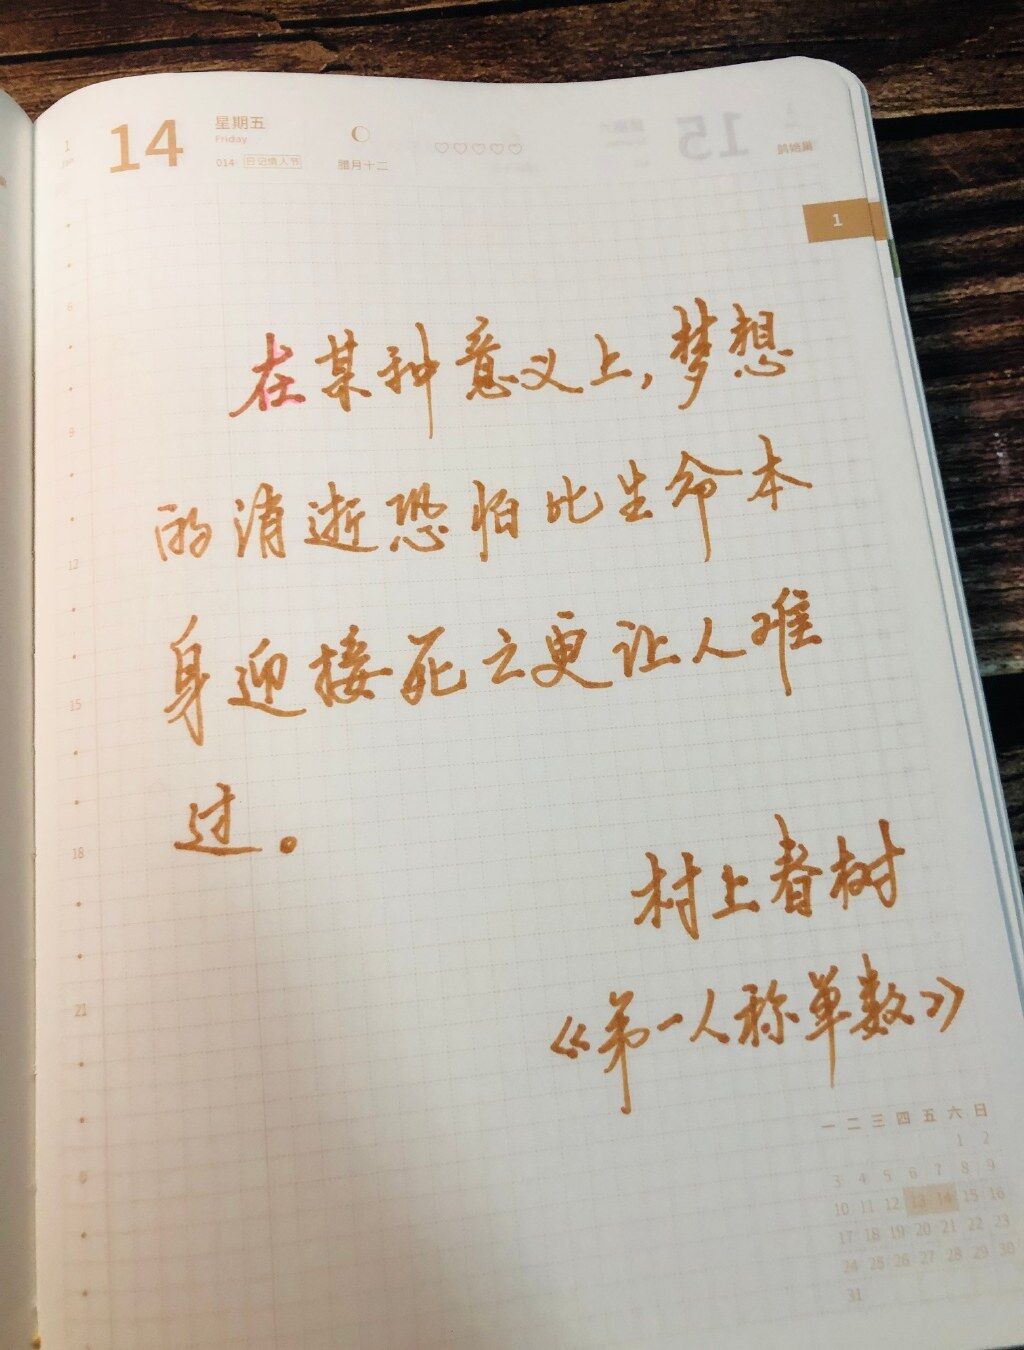 1
Jan
14
星期五
Friday
014 日记情人节
腊月十二
15
1
6
9
12
15
18
21
在某种意义上,梦想
的消逝恐怕比生命本
身迎接死亡更让人难
过。
村上春树
《第一人称单数》
一 二 三 四 五 六 日
1 2
3 4 5 6 7 8 9
10 11 12 13 14 15 16
17 18 19 20 21 22 23
24 25 26 27 28 29 30
31